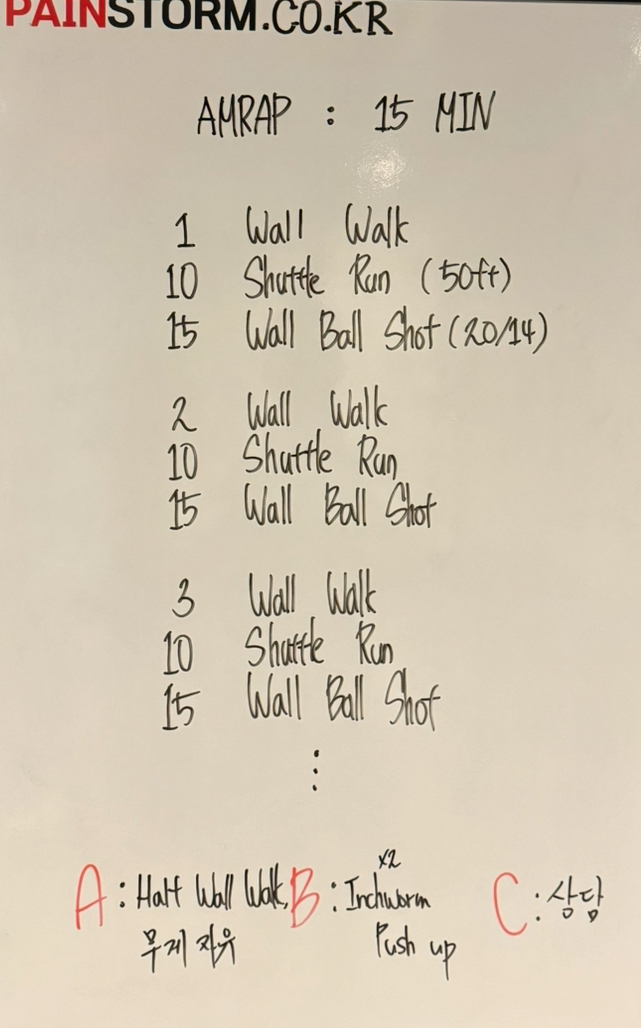 PAINSTORM.CO.KR
AMRAP : 15 MIN
1 Wall Walk
10 Shuttle Run (50ft)
15 Wall Ball Shot (20/14)
2 Wall Walk
10 Shuttle Run
15 Wall Ball Shot
3 Wall Walk
10 Shuttle Run
15 Wall Ball Shot
⋮
A : Half Wall Walk,
무게 자유
B : Inchworm x2
Push up
C : 상담